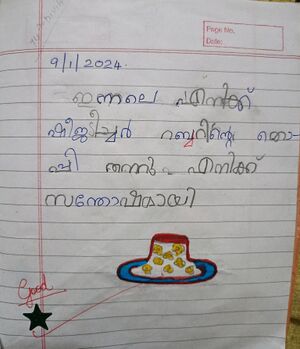 Page No.
Date:
9/1/2024.
ഇന്നലെ എനിക്ക്
ഷീജടീച്ചർ റബ്ബറിന്റെ തൊ-
പ്പി തന്നു. എനിക്ക്
സന്തോഷമായി
Good